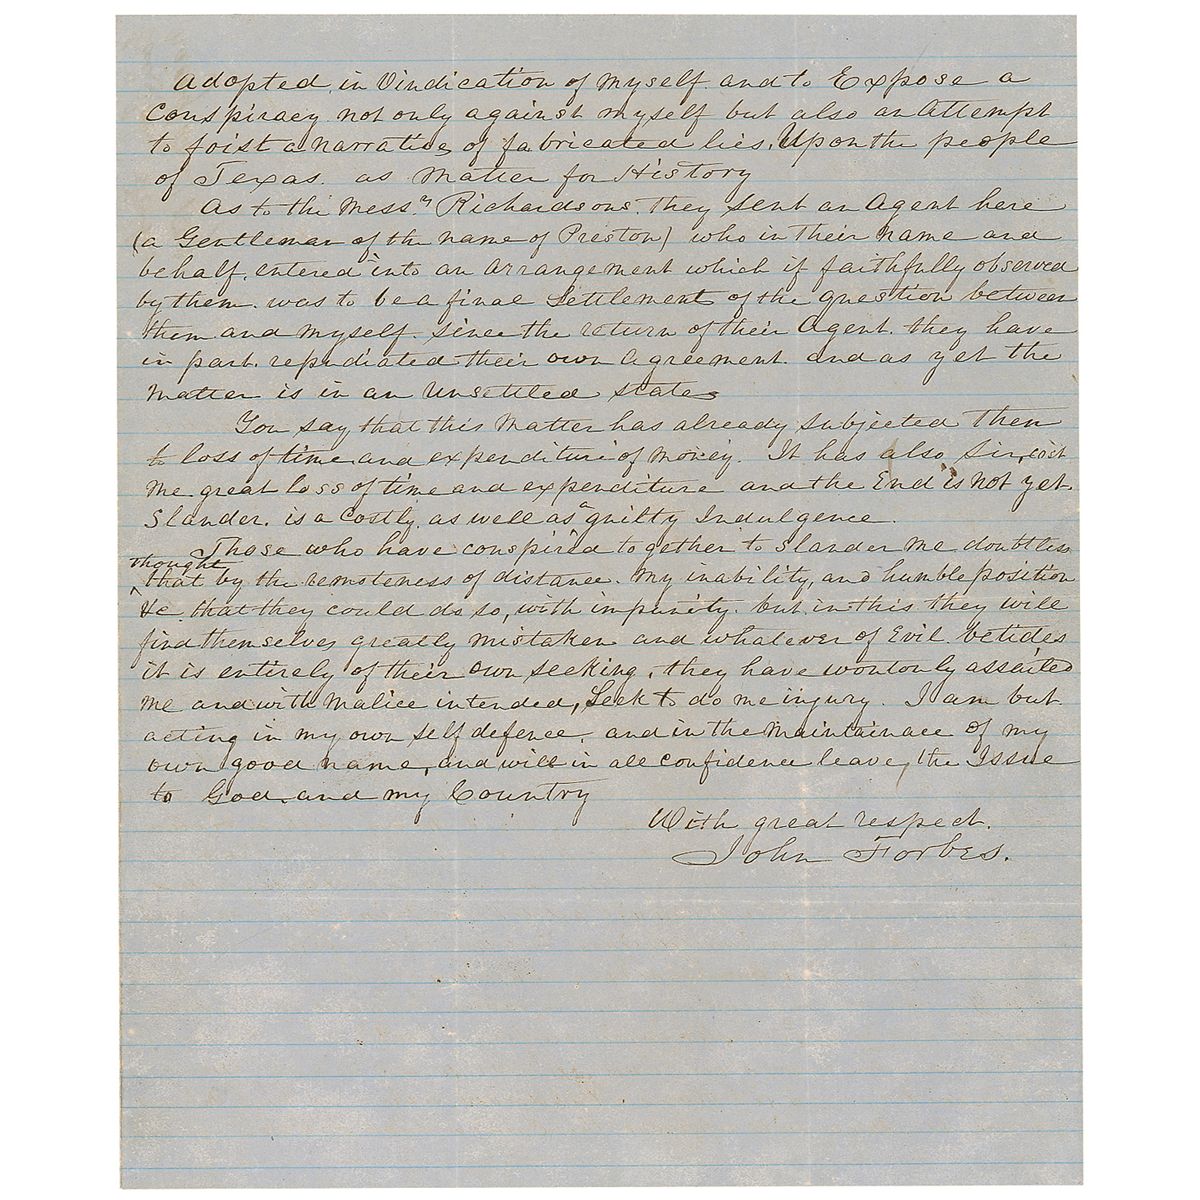 adopted, in Vindication of myself. and to Expose a
Conspiracy not only against myself but also an Attempt
to foist a narrative of fabricated lies, Upon the people
of Texas. as Matter for History
As to the Messrs Richardsons. They sent an Agent here
(a Gentleman of the name of Preston) who in their name and
behalf. entered into an arrangement which if faithfully observed
by them. was to be a final Settlement of the question between
them and myself. since the return of their Agent. they have
in part. repudiated their own agreement. and as yet the
Matter is in an Unsettled state
You say that this Matter has already subjected Them
to loss of time and expenditure of money. It has also Sir, cost
me great loss of time and expenditure and the End is not yet.
Slander. is a Costly, as well as a guilty Indulgence.
Those who have conspired together to slander me doubtless
thought
that by the remoteness of distance. my inability, and humble position
&c. that they could do so, with impunity. but in this they will
find themselves greatly mistaken and whatever of Evil betides
it is entirely of their own seeking. they have wontonly assailed
me and with Malice intended, Seek to do me injury. I am but
acting in my own self defence. and in the maintainace of my
own good name, and will in all confidence leave, the Issue
to God. and my Country
With great respect.
John Forbes.